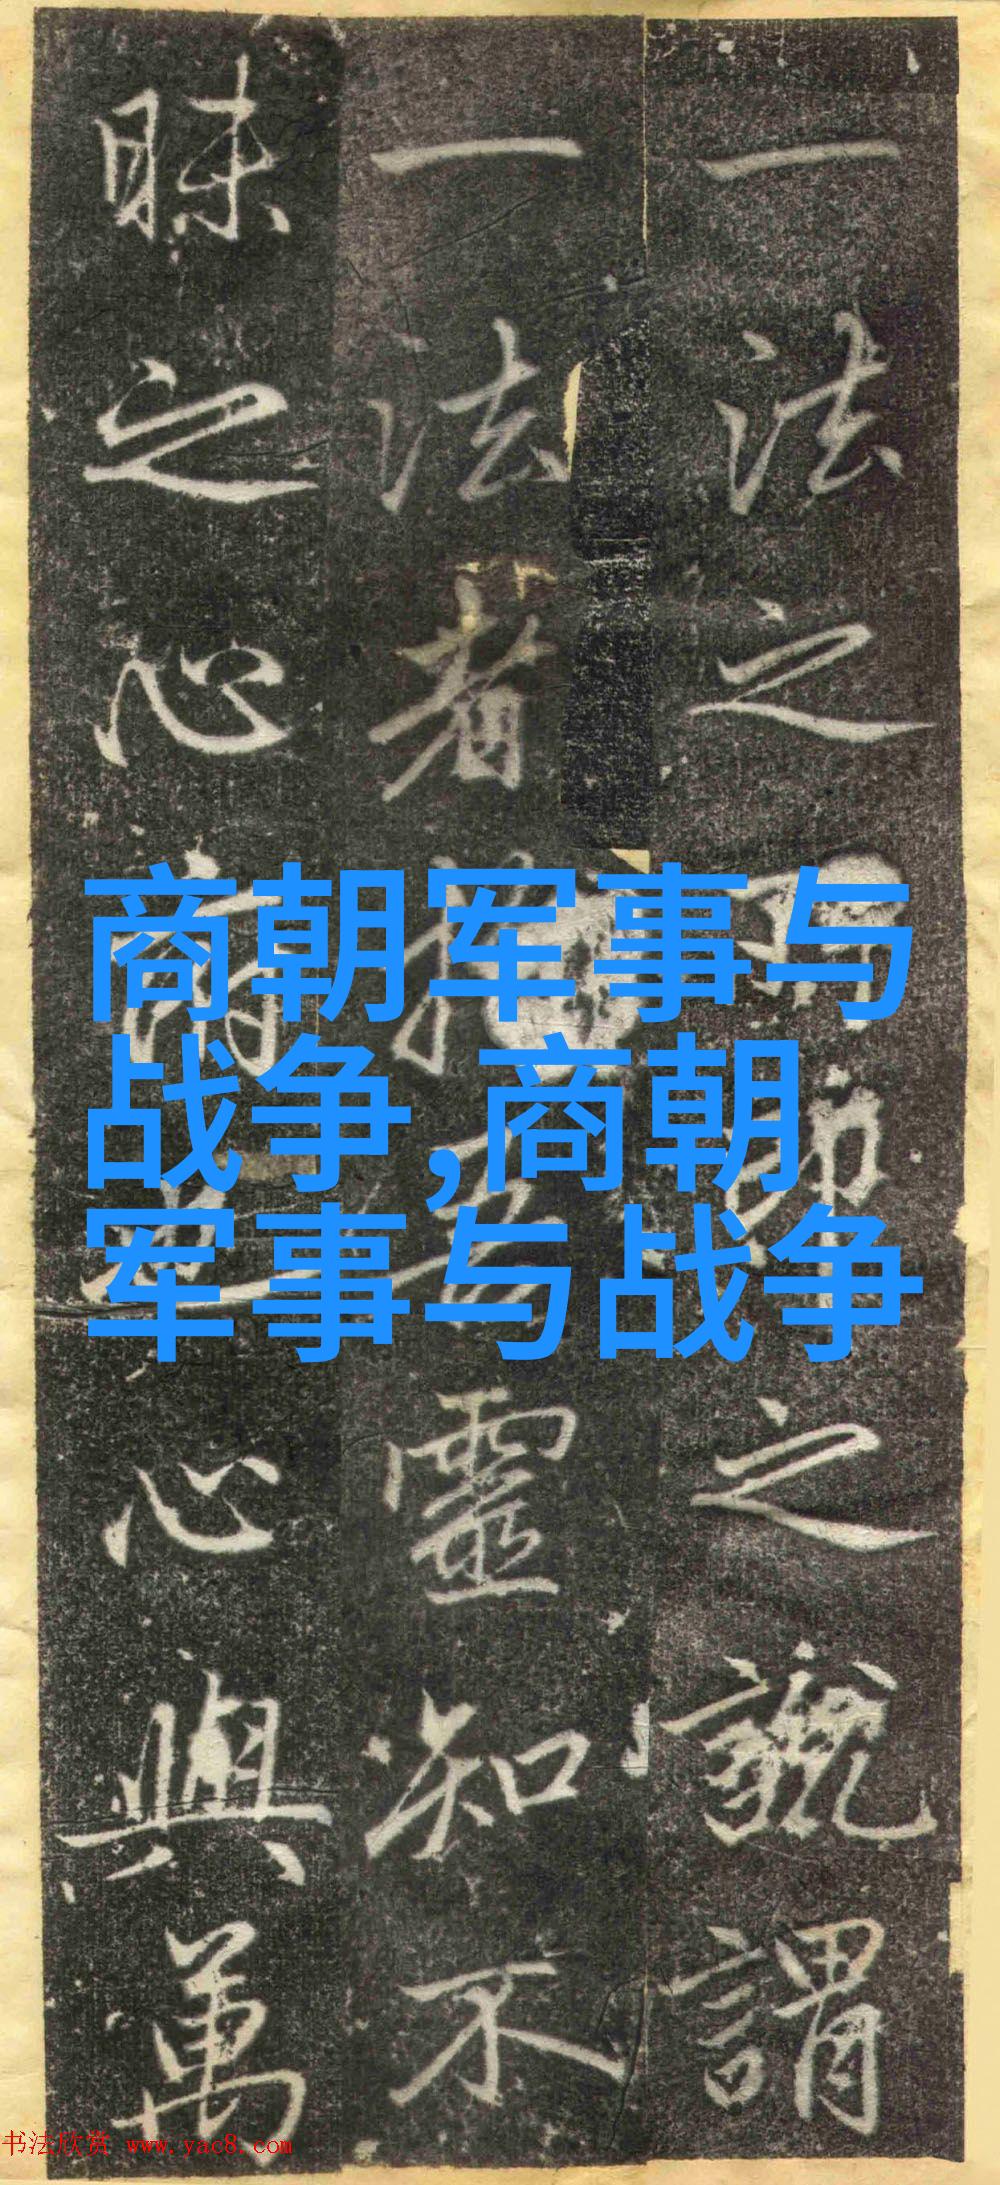 一法之之謂
一法者靈知不
昧之心心與萬
商朝军事与
战争,商朝
军事与战争
书法欣赏 www.yac8.com